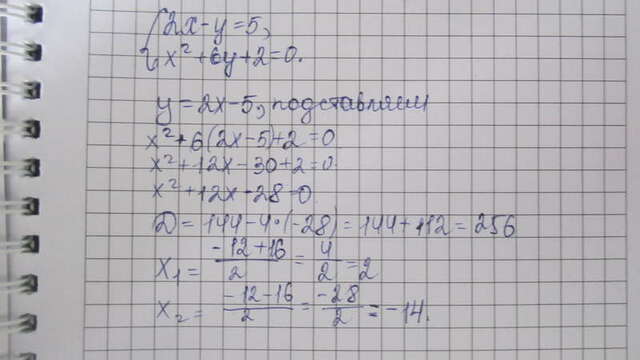 {2x-y=5,
x²+6y+2=0.
y=2x-5, подставляем
x²+6(2x-5)+2=0
x²+12x-30+2=0.
x²+12x-28=0
D=144-4·(-28)=144+112=256
x₁= (-12+16)/2 = 4/2 =2
x₂= (-12-16)/2 = -28/2 = -14.